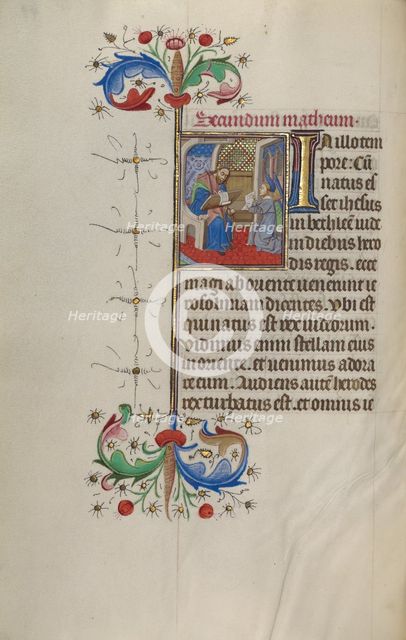 Secundum matheum.
In illo tem
pore: Cū
natus es
set ihesus
in bethleē iude
in diebus hero
dis regis. ecce
magi ab oriente venerunt ie
rosolimam dicentes. Ubi est
qui natus est rex iudeorum.
Vidimus enim stellam eius
in oriente. et venimus adora
re eum. Audiens autē herodes
rex turbatus est. et omnis ie
Heritage
Heritage
Heritage
Heritage
Heritage
Heritage